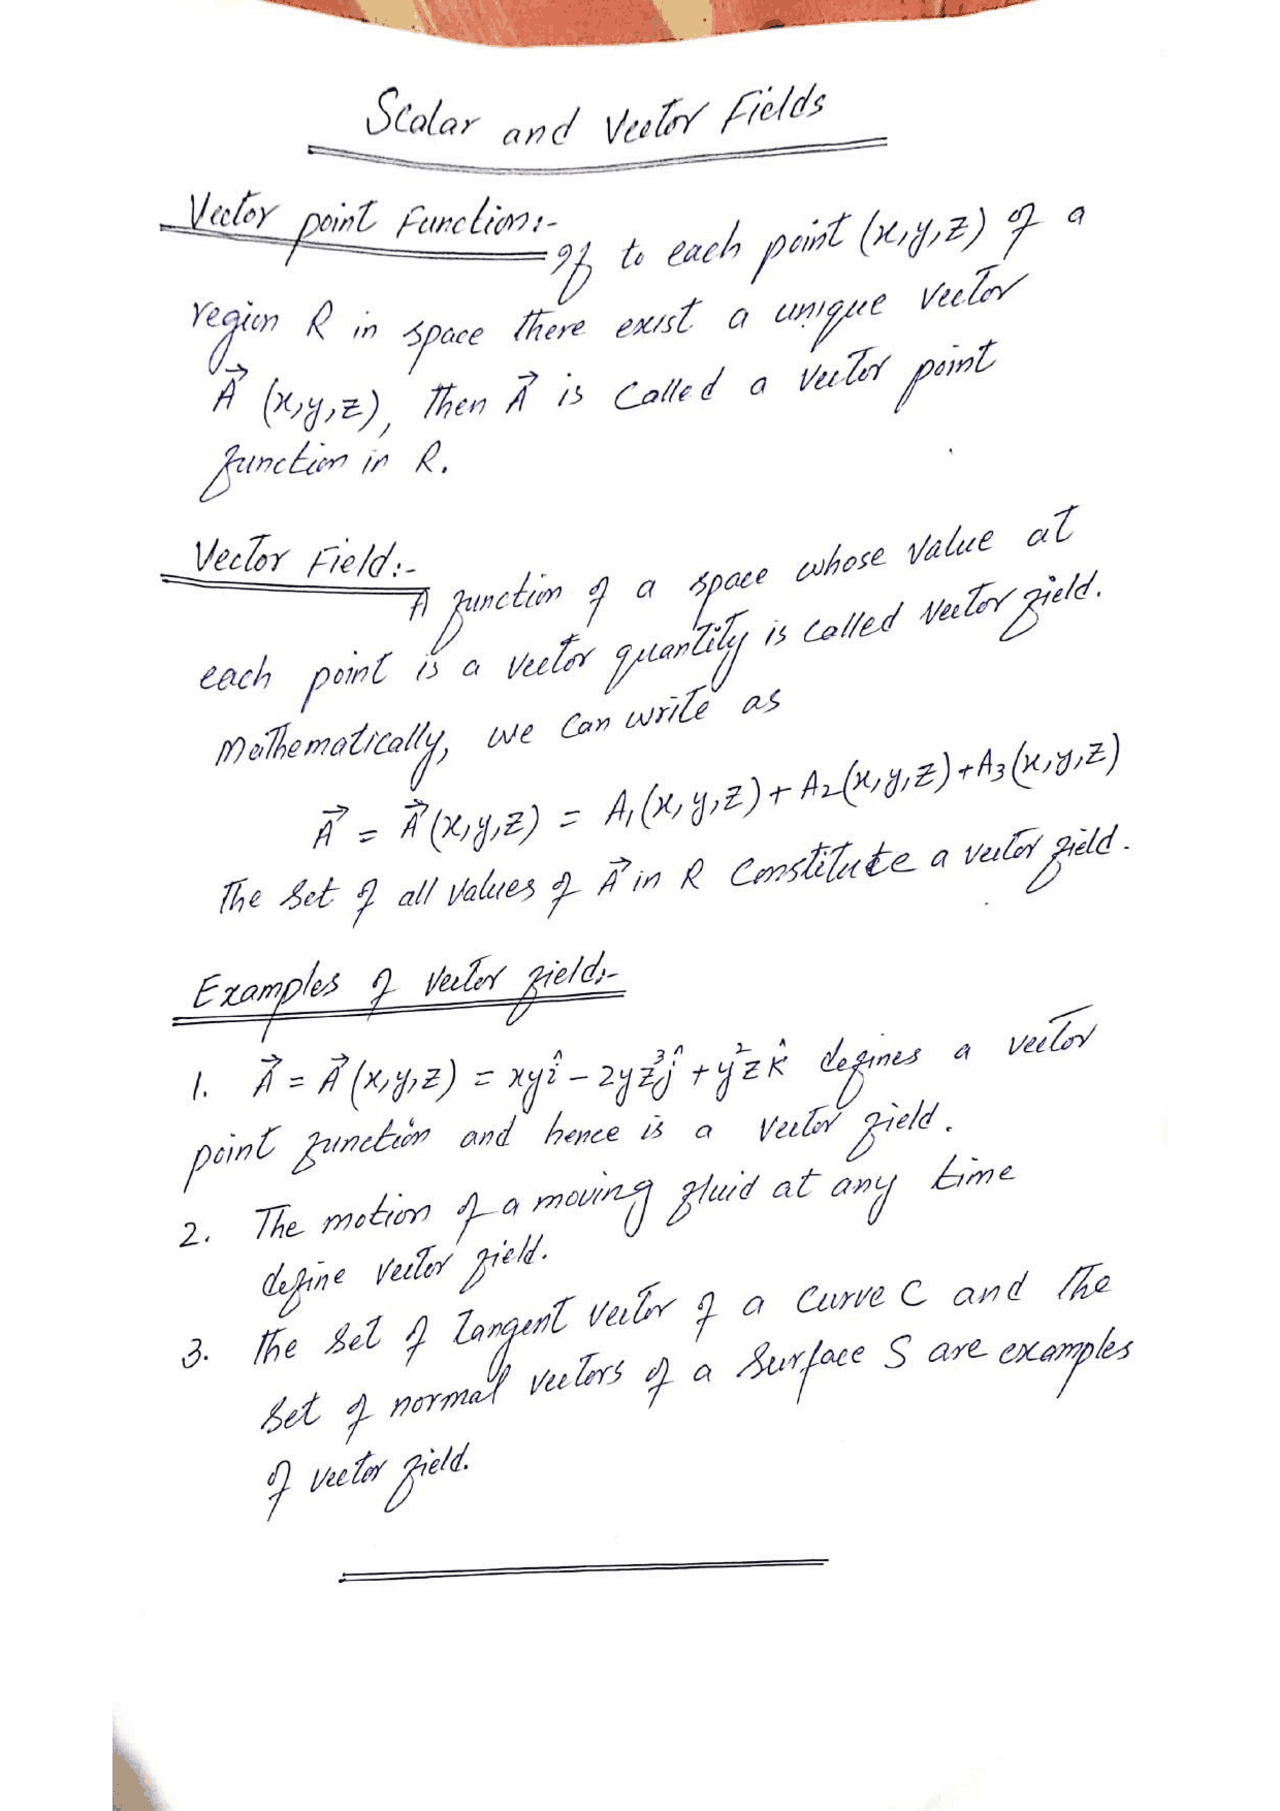 Scalar and Vector Fields
Vector point Function:-
If to each point (x,y,z) of a
region R in space there exist a unique vector
A⃗ (x,y,z), then A⃗ is called a vector point
function in R.
Vector Field:-
A function of a space whose value at
each point is a vector quantity is called vector field.
Mathematically, we can write as
A⃗ = A⃗(x,y,z) = A₁(x,y,z) + A₂(x,y,z) + A₃(x,y,z)
The set of all values of A⃗ in R constitute a vector field.
Examples of vector field:-
1. A⃗ = A⃗(x,y,z) = xyî - 2yz³ĵ + y²zk̂ defines a vector
point function and hence is a vector field.
2. The motion of a moving fluid at any time
define vector field.
3. The set of tangent vector of a curve C and the
set of normal vectors of a surface S are examples
of vector field.